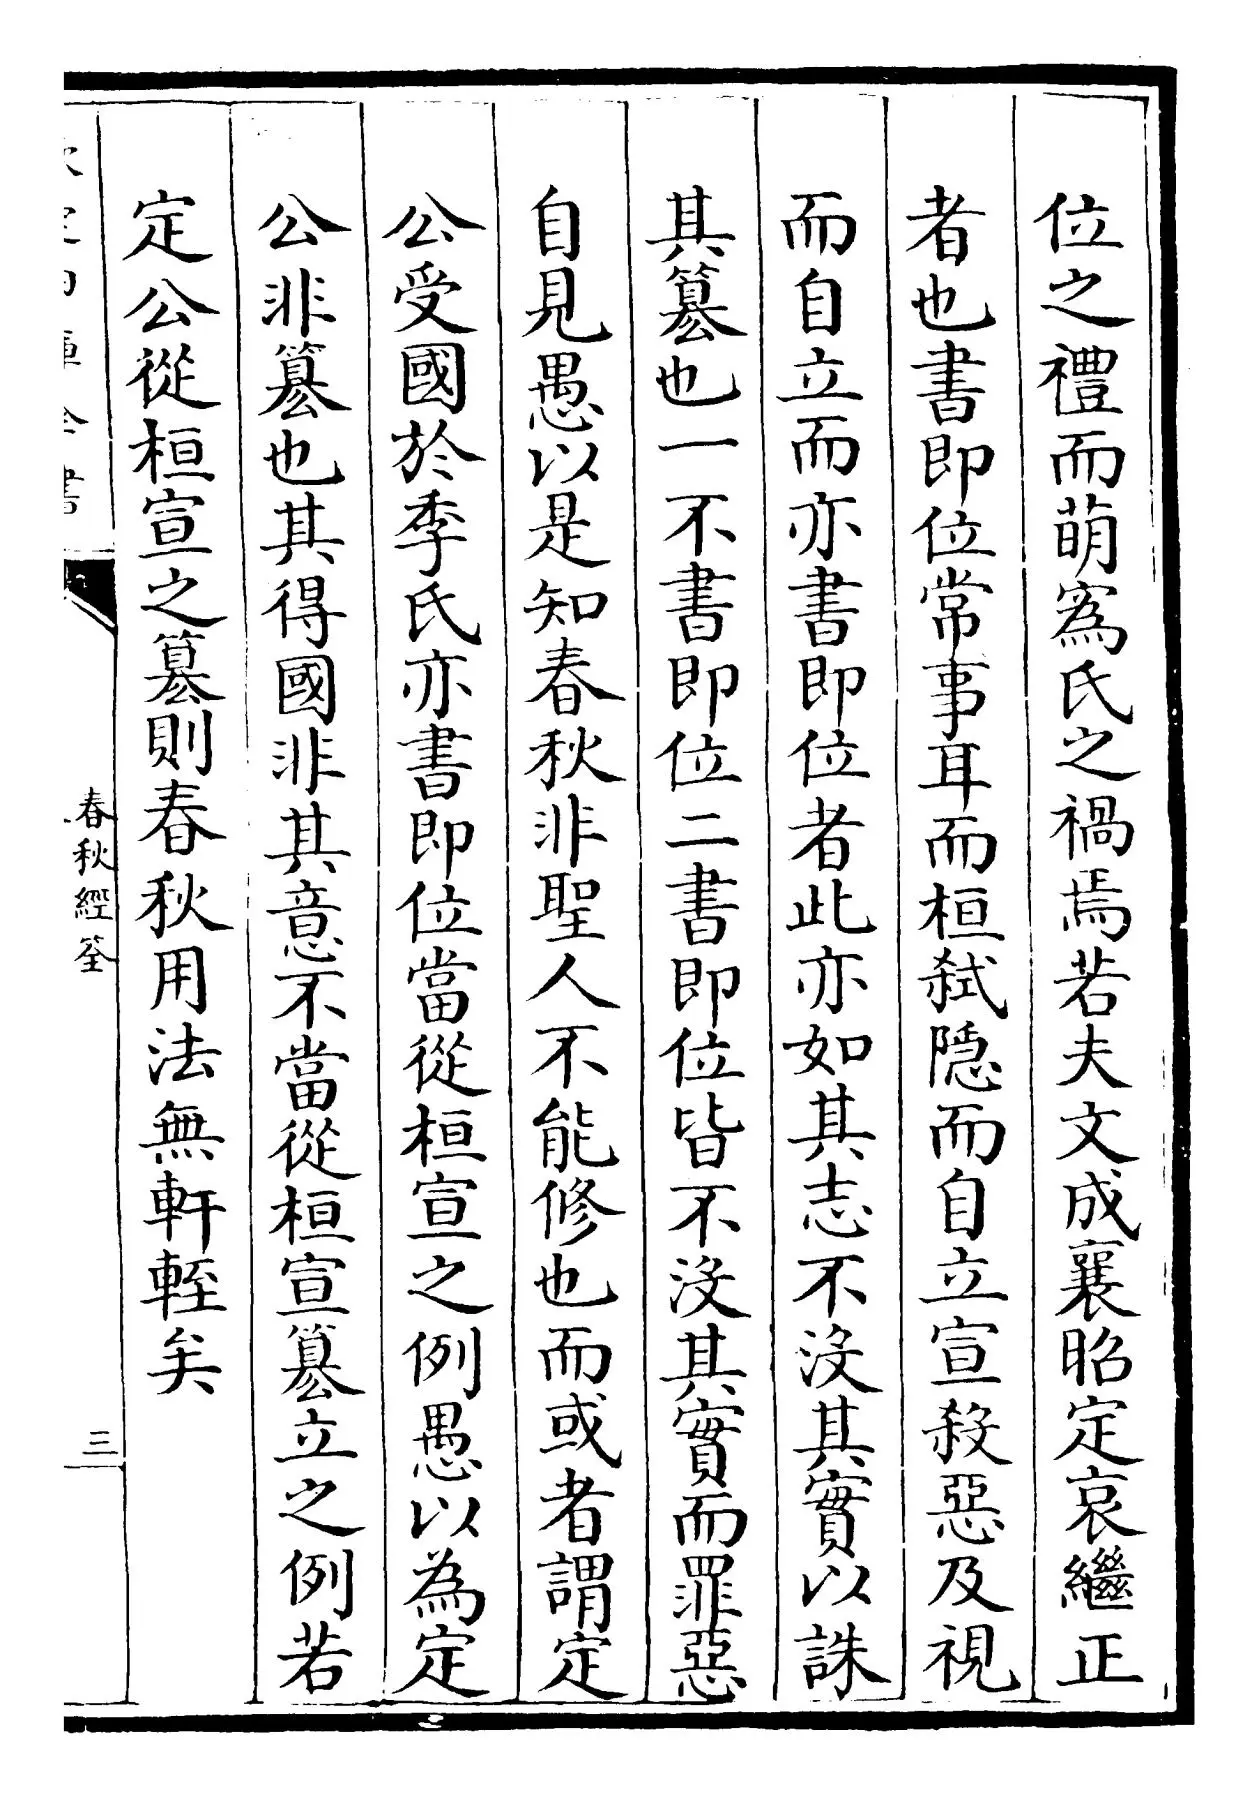 位之禮而萌寪氏之禍焉若夫文成襄昭定哀繼正
者也書即位常事耳而桓弑隠而自立宣殺惡及視
而自立而亦書即位者此亦如其志不沒其實以誅
其篡也一不書即位二書即位皆不沒其實而罪惡
自見愚以是知春秋非聖人不能修也而或者謂定
公受國於季氏亦書即位當從桓宣之例愚以為定
公非篡也其得國非其意不當從桓宣篡立之例若
定公從桓宣之篡則春秋用法無軒輊矣
欽定四庫全書
春秋經筌
三